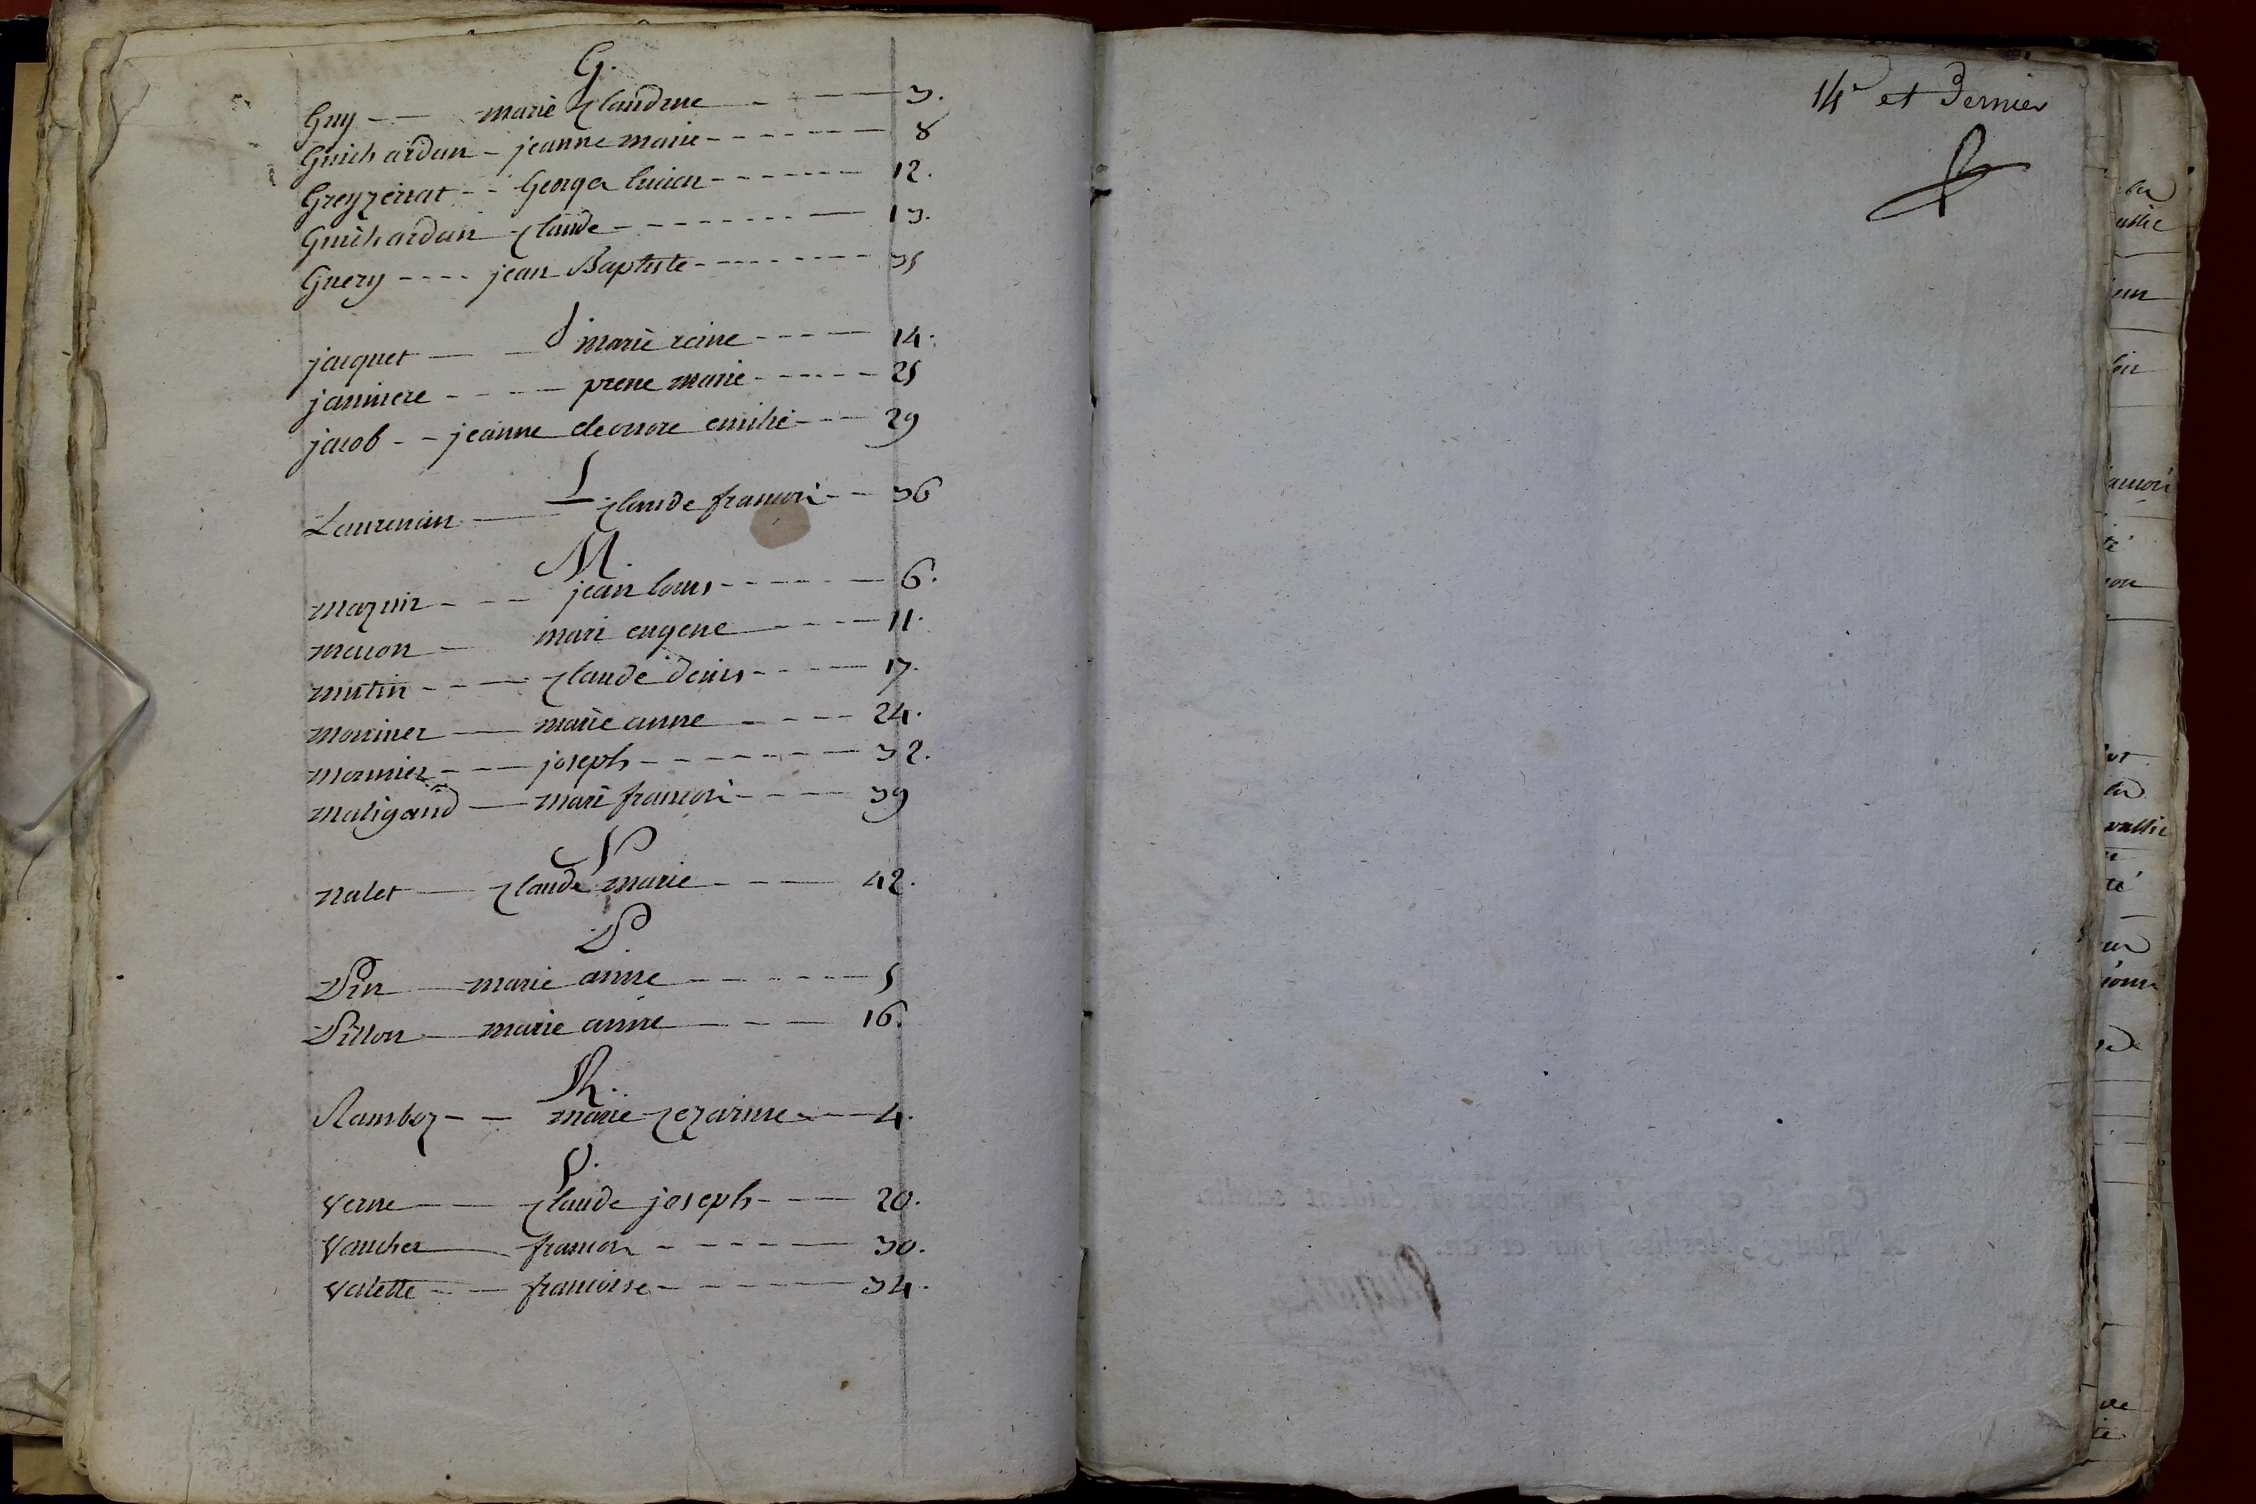 G.
Guy -- marie Claudine - - 3.
Guichardan - jeanne marie - - - - - - 8
Greyzenat - - George lucien - - - - - - 12.
Guichardan Claude - - - - - - - 13.
Guery - - - - jean Baptiste - - - - - - - - 35
J
jacquet - - marie reine - - - - 14.
janniere - - - - pierre marie - - - - - 25
jacob - - jeanne eleonore emilie - - - 29
L
Laurençin - Claude francois - - 36
M.
mazuir - - - jean louis - - - - - - 6.
maison - mari eugene - - - - 11.
mutin - - - - Claude denis - - - - - 17.
monnier - marie anne - - - - 24.
monnier - - - joseph - - - - - - - 32.
maligand - mari francois - - - - 39
N
nalet - Claude marie - - - - 42.
P.
Pin - marie anne - - - - - - 5
Pillon - marie anne - - - - 16.
R.
Ramboz - - marie Cezarinne - - 4.
V.
verne - - Claude joseph - - - 20.
vaucher - francois - - - - - 30.
valette - - francoise - - - - - - 34.
14e et Dernier